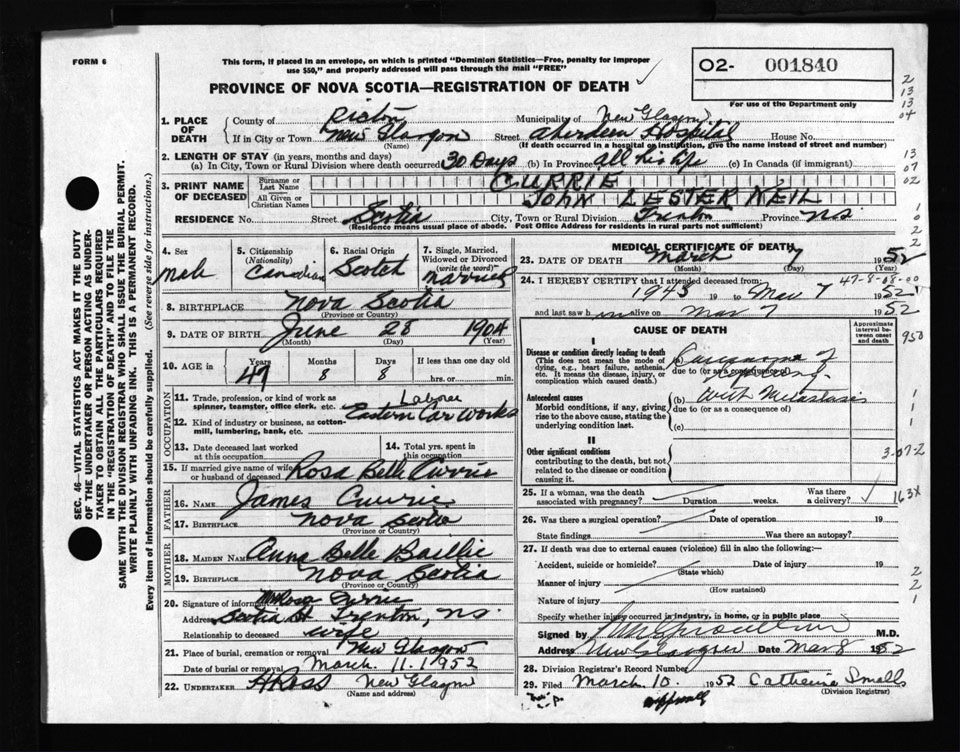 FORM 6
This form, if placed in an envelope, on which is printed "Dominion Statistics—Free, penalty for improper
use $50," and properly addressed will pass through the mail "FREE"
PROVINCE OF NOVA SCOTIA—REGISTRATION OF DEATH
02- 001840
For use of the Department only
2
13
13
04
13
07
02
1
0
2
2
1. PLACE OF DEATH
County of Pictou Municipality of New Glasgow
If in City or Town New Glasgow Street Aberdeen Hospital House No.
(Name) (If death occurred in a hospital or institution, give the name instead of street and number)
2. LENGTH OF STAY (in years, months and days)
(a) In City, Town or Rural Division where death occurred 30 Days (b) In Province all his life (c) In Canada (if immigrant)
3. PRINT NAME OF DECEASED
Surname or Last Name CURRIE
All Given or Christian Names JOHN LESTER NEIL
RESIDENCE No. Street Scotia City, Town or Rural Division Trenton Province N.S.
(Residence means usual place of abode. Post Office Address for residents in rural parts not sufficient)
4. Sex Male
5. Citizenship (Nationality) Canadian
6. Racial Origin Scotch
7. Single, Married, Widowed or Divorced (write the word) Married
8. BIRTHPLACE Nova Scotia
(Province or Country)
9. DATE OF BIRTH June 28 1904
(Month) (Day) (Year)
10. AGE in Years 47 Months 8 Days 8 If less than one day old hrs. or min.
OCCUPATION
11. Trade, profession or kind of work as spinner, teamster, office clerk, etc. Laborer
12. Kind of industry or business, as cotton-mill, lumbering, bank, etc. Eastern Car Works
13. Date deceased last worked at this occupation
14. Total yrs. spent in this occupation
15. If married give name of wife or husband of deceased Rosa Belle Currie
FATHER
16. NAME James Currie
17. BIRTHPLACE Nova Scotia
(Province or Country)
MOTHER
18. MAIDEN NAME Anna Belle Baillie
19. BIRTHPLACE Nova Scotia
(Province or Country)
20. Signature of informant Mrs Rosa Currie
Address Scotia St Trenton, N.S.
Relationship to deceased wife
21. Place of burial, cremation or removal New Glasgow
Date of burial or removal March 11. 1952
22. UNDERTAKER New Glasgow
(Name and address)
MEDICAL CERTIFICATE OF DEATH
23. DATE OF DEATH March 7 1952
(Month) (Day) (Year)
47-8-08-00
24. I HEREBY CERTIFY that I attended deceased from:
1943 19 to Mar 7 1952
and last saw h im alive on Mar 7 1952
CAUSE OF DEATH
Approximate interval between onset and death
950
I
Disease or condition directly leading to death
(This does not mean the mode of dying, e.g., heart failure, asthenia, etc. It means the disease, injury, or complication which caused death.)
(a) Carcinoma of
due to (or as a consequence of)
Antecedent causes
Morbid conditions, if any, giving rise to the above cause, stating the underlying condition last.
(b) with Metastasis
due to (or as a consequence of)
(c)
1
1
1
II
Other significant conditions
contributing to the death, but not related to the disease or condition causing it.
3-07-2
25. If a woman, was the death associated with pregnancy? Duration weeks. Was there a delivery?
163X
26. Was there a surgical operation? Date of operation 19
State findings Was there an autopsy?
27. If death was due to external causes (violence) fill in also the following:—
Accident, suicide or homicide? Date of injury 19
(State which)
Manner of injury
(How sustained)
Nature of injury
2
2
1
Specify whether injury occurred in industry, in home, or in public place
Signed by M.D.
Address New Glasgow Date Mar 8 1952
28. Division Registrar's Record Number
29. Filed March 10. 1952 Catherine Smalls
(Division Registrar)
SEC. 46—VITAL STATISTICS ACT MAKES IT THE DUTY
OF THE UNDERTAKER OR PERSON ACTING AS UNDER-
TAKER TO OBTAIN ALL THE PARTICULARS REQUIRED
IN THE "REGISTRATION OF DEATH" AND TO FILE THE
SAME WITH THE DIVISION REGISTRAR WHO SHALL ISSUE THE BURIAL PERMIT.
WRITE PLAINLY WITH UNFADING INK. THIS IS A PERMANENT RECORD.
Every item of information should be carefully supplied. (See reverse side for instructions.)